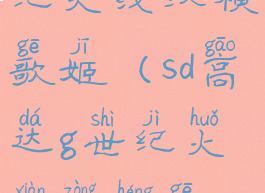 gē jī gāo
歌姬（sd高
dá shì jì huǒ
达g世纪火
xiàn zòng héng gē